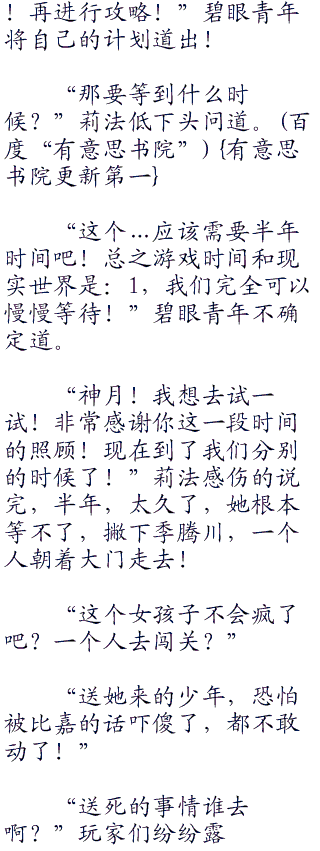 ！再进行攻略！”碧眼青年
将自己的计划道出！
“那要等到什么时
候？”莉法低下头问道。(百
度“有意思书院”) {有意思
书院更新第一}
“这个…应该需要半年
时间吧！总之游戏时间和现
实世界是：1，我们完全可以
慢慢等待！”碧眼青年不确
定道。
“神月！我想去试一
试！非常感谢你这一段时间
的照顾！现在到了我们分别
的时候了！”莉法感伤的说
完，半年，太久了，她根本
等不了，撇下季腾川，一个
人朝着大门走去！
“这个女孩子不会疯了
吧？一个人去闯关？”
“送她来的少年，恐怕
被比嘉的话吓傻了，都不敢
动了！”
“送死的事情谁去
啊？”玩家们纷纷露